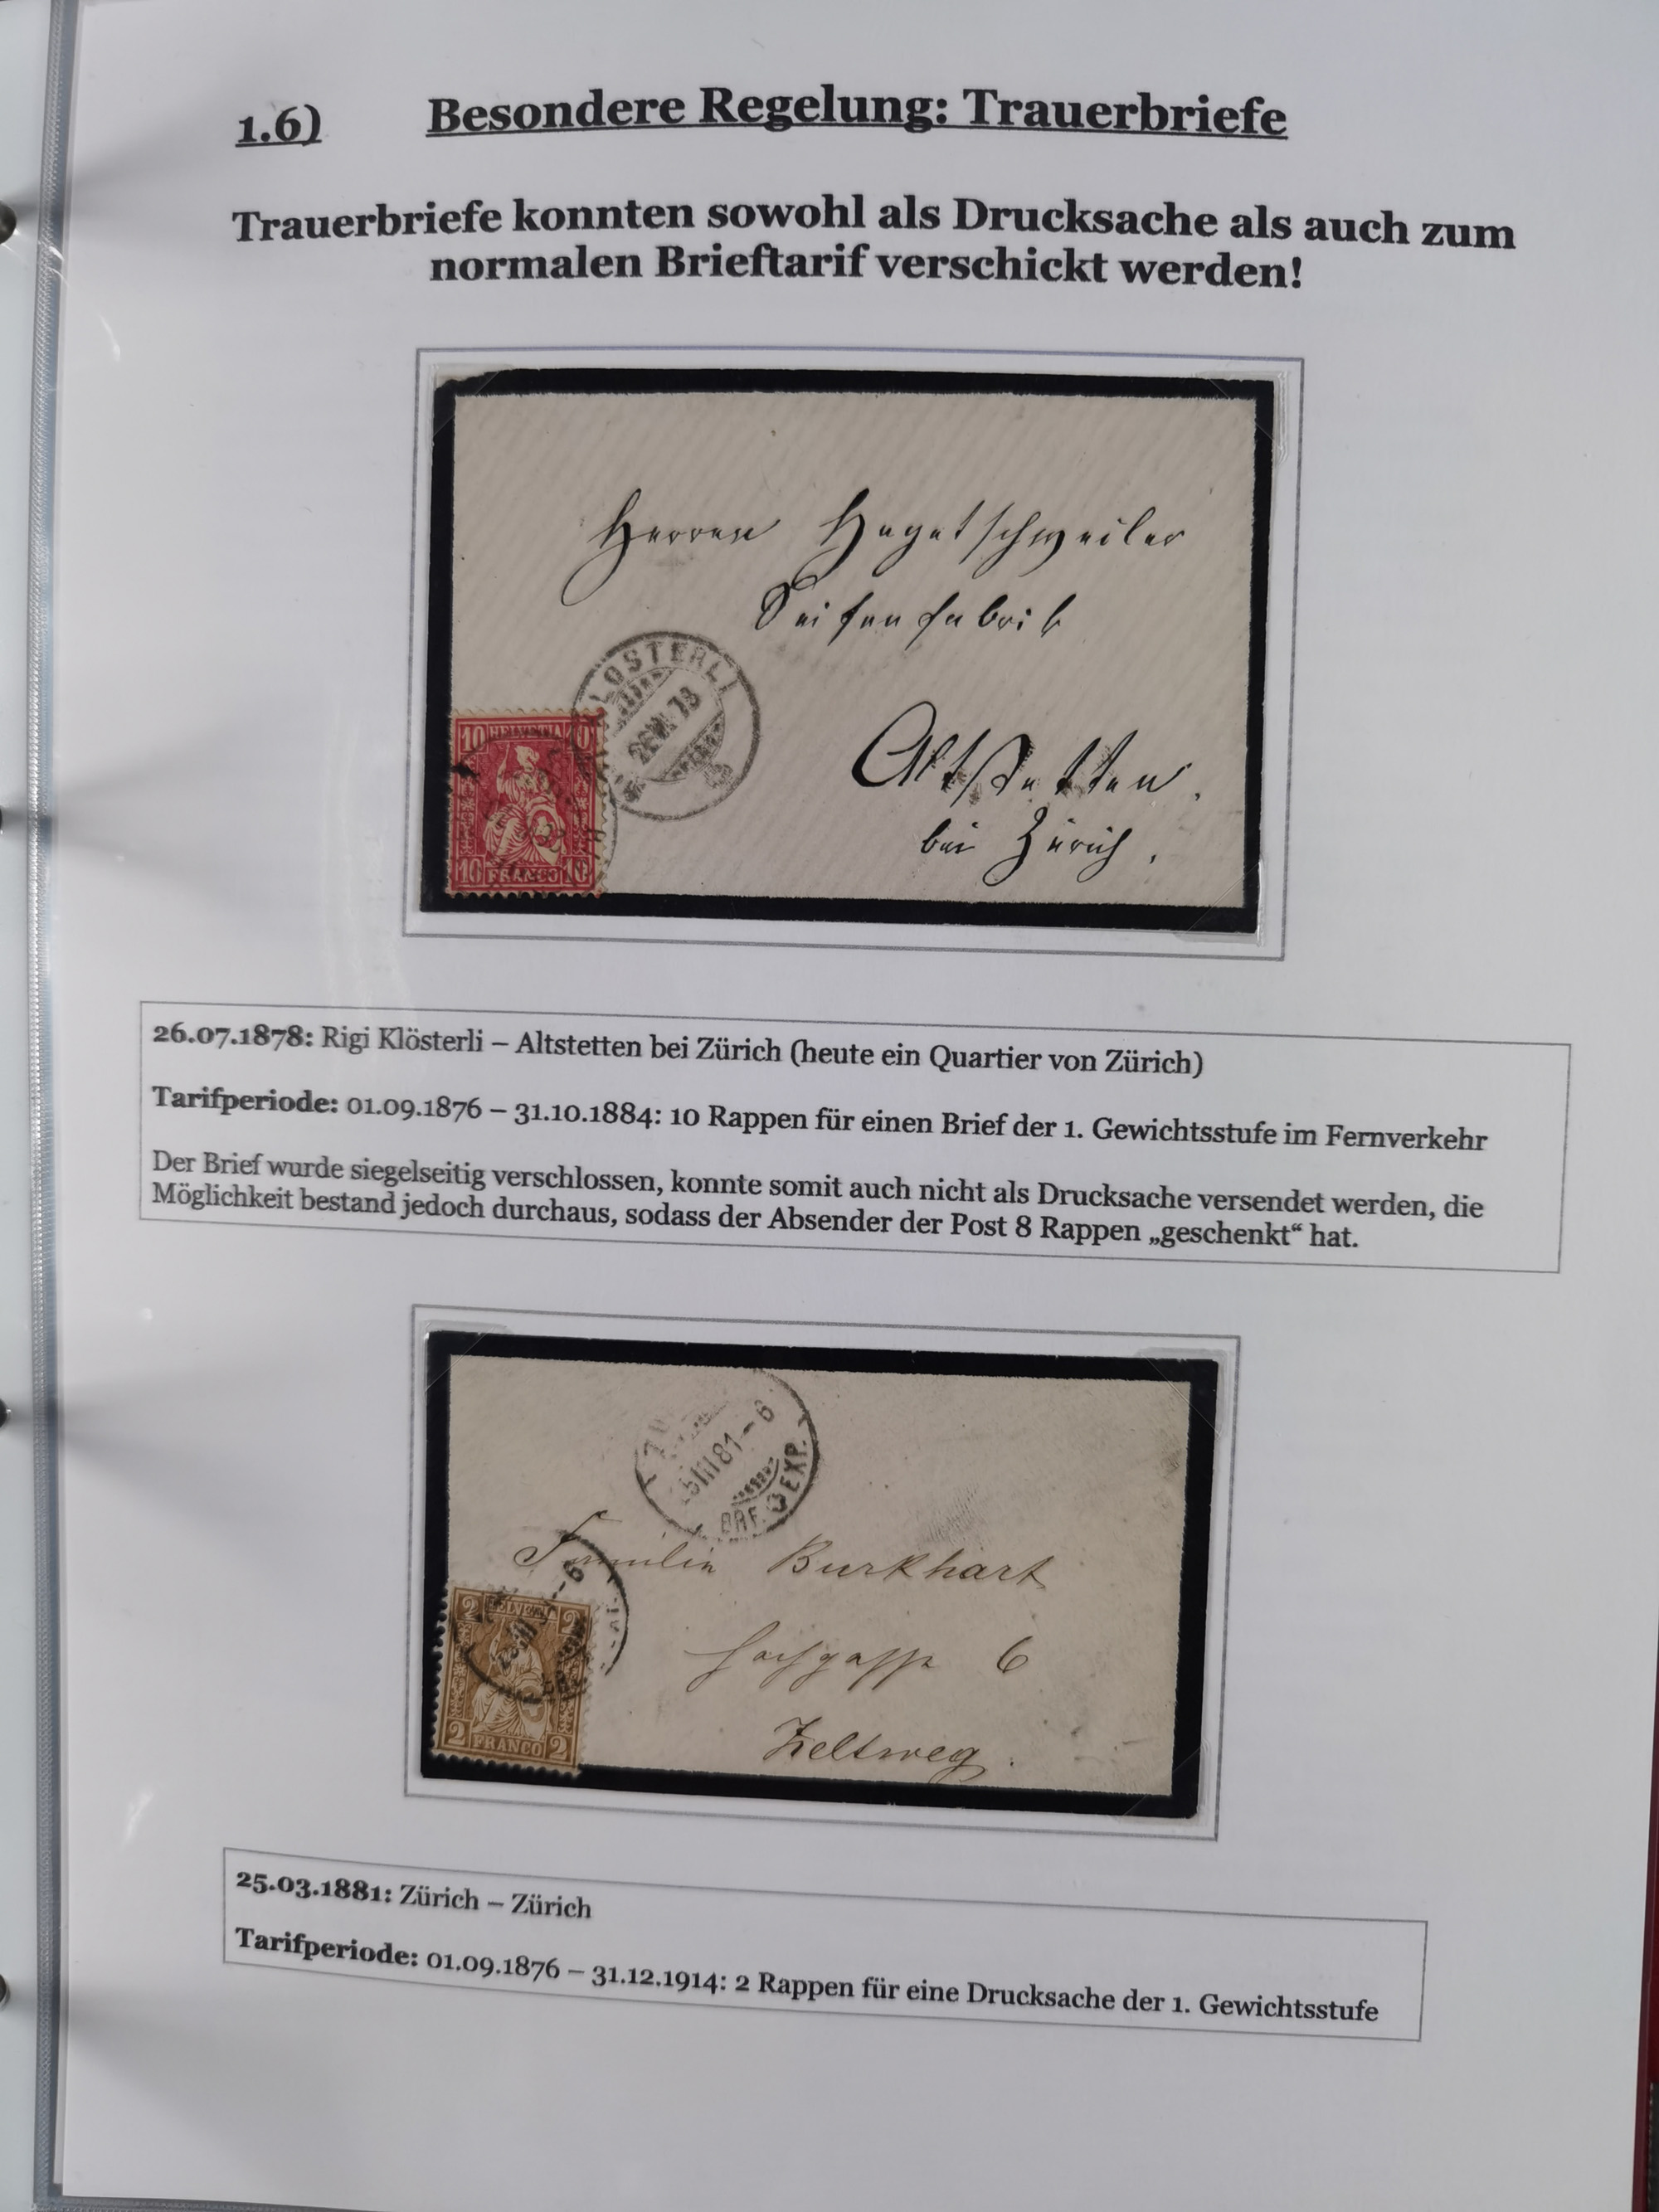 1.6) Besondere Regelung: Trauerbriefe
Trauerbriefe konnten sowohl als Drucksache als auch zum
normalen Brieftarif verschickt werden!
Herren Hagetschweiler
Seifenfabrik
KLÖSTERLI
26 VII 78
10 HELVETIA 10
10 FRANCO 10
Altstetten.
bei Zürich.
26.07.1878: Rigi Klösterli – Altstetten bei Zürich (heute ein Quartier von Zürich)
Tarifperiode: 01.09.1876 – 31.10.1884: 10 Rappen für einen Brief der 1. Gewichtsstufe im Fernverkehr
Der Brief wurde siegelseitig verschlossen, konnte somit auch nicht als Drucksache versendet werden, die
Möglichkeit bestand jedoch durchaus, sodass der Absender der Post 8 Rappen „geschenkt“ hat.
25 III 81 – 6
BRF. EXP.
Familie Burkhart
6
2 HELVETIA 2
2 FRANCO 2
Zeltweg.
25.03.1881: Zürich – Zürich
Tarifperiode: 01.09.1876 – 31.12.1914: 2 Rappen für eine Drucksache der 1. Gewichtsstufe